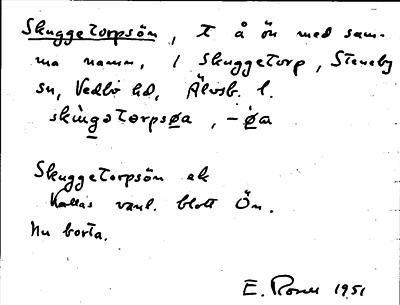 Skuggetorpsön, t å ön med sam-
ma namn, i Skuggetorp, Steneby
sn, Vedbo hd, Älvsb. l.
skùgətorpsøa, -ǿa
Skuggetorpsön ek
kallas vanl. blott Ön.
Nu borta.
E. Rosell 1951